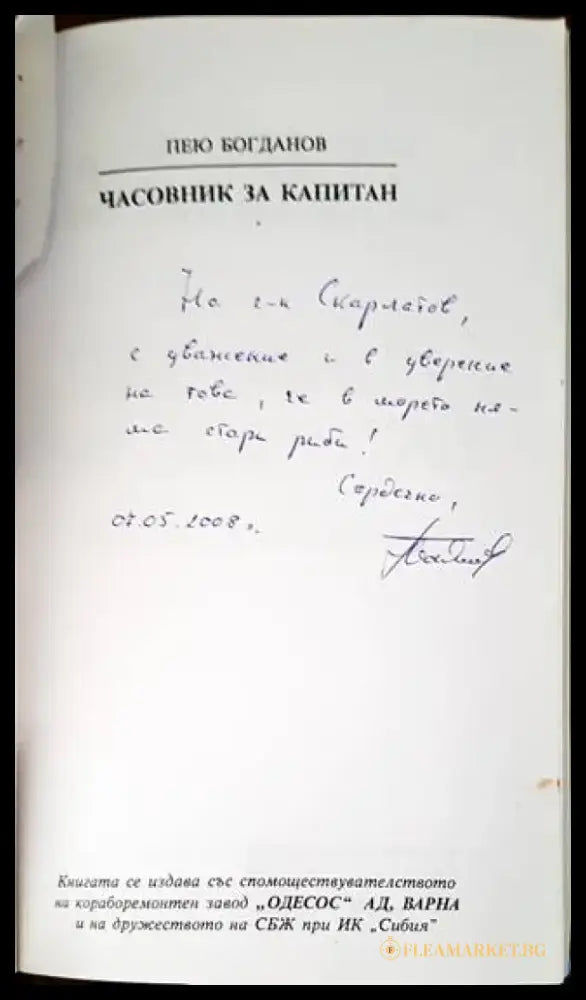 ПЕЮ БОГДАНОВ
ЧАСОВНИК ЗА КАПИТАН
На г-н Скарлатов,
с уважение и в уверение
на това, че в морето ня-
ма стари риби!
Сердечно,
07.05.2008 г.
Книгата се издава със спомоществувателството
на кораборемонтен завод „ОДЕСОС“ АД, ВАРНА
и на дружеството на СБЖ при ИК „Сибия”
FLEAMARKET.BG